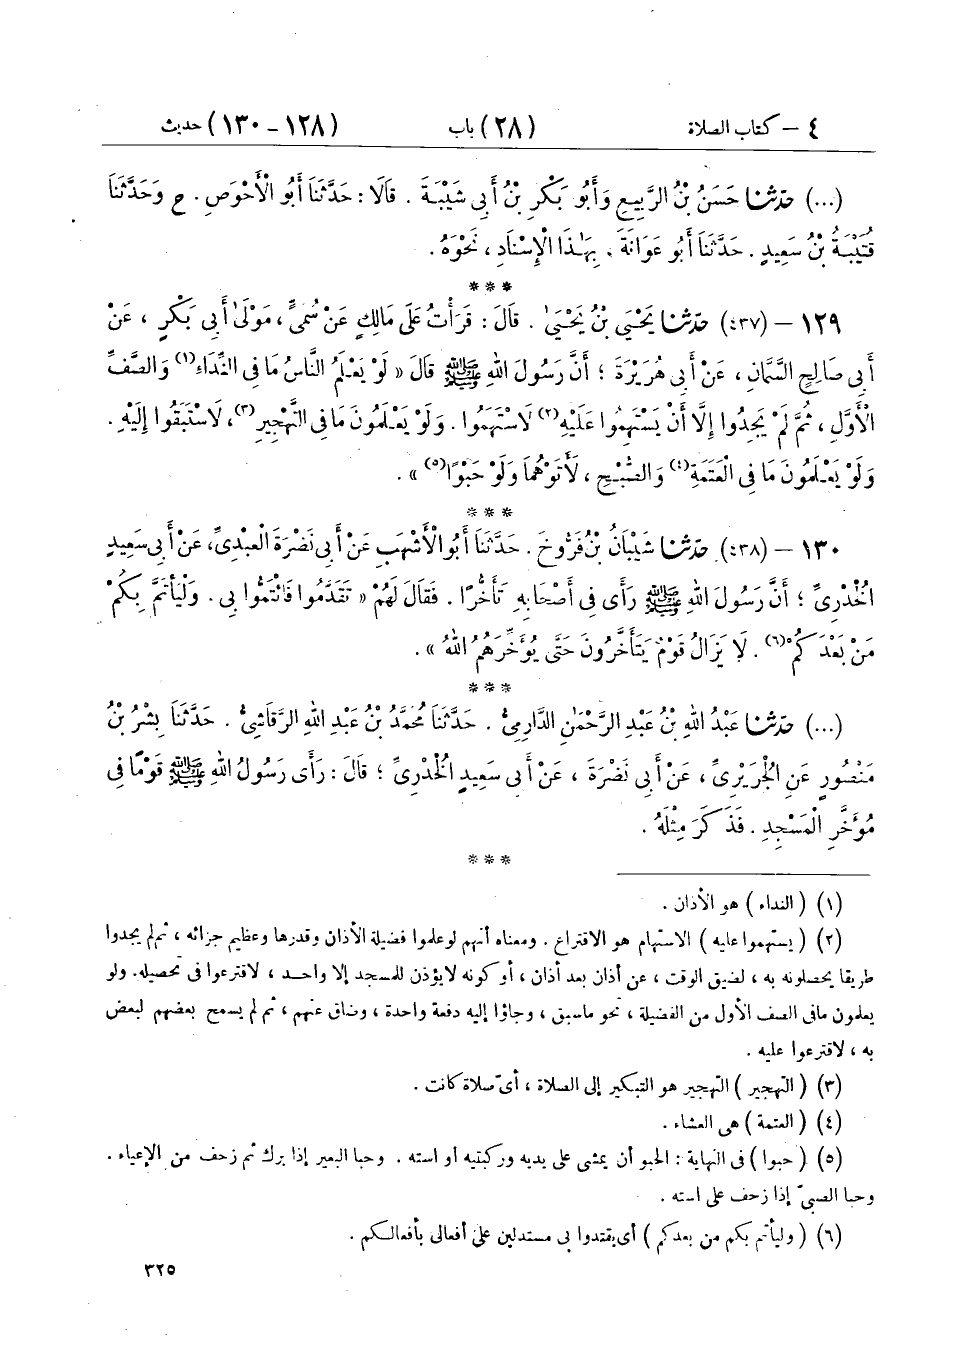 ٤ – كتاب الصلاة (٢٨) باب (١٢٨-١٣٠) حديث
(...) حَدَّثَنَا حَسَنُ بْنُ الرَّبِيعِ وَأَبُو بَكْرِ بْنُ أَبِي شَيْبَةَ . قَالَا : حَدَّثَنَا أَبُو الْأَحْوَصِ . ح وَحَدَّثَنَا
قُتَيْبَةُ بْنُ سَعِيدٍ . حَدَّثَنَا أَبُو عَوَانَةَ . بِهَـٰذَا الْإِسْنَادِ ، نَحْوَهُ .
***
١٢٩ – (٤٣٧) حَدَّثَنَا يَحْيَىٰ بْنُ يَحْيَىٰ . قَالَ : قَرَأْتُ عَلَىٰ مَالِكٍ عَنْ سُمَيٍّ ، مَوْلَىٰ أَبِي بَكْرٍ ، عَنْ
أَبِي صَالِحٍ السَّمَّانِ ، عَنْ أَبِي هُرَيْرَةَ ؛ أَنَّ رَسُولَ اللهِ ﷺ قَالَ « لَوْ يَعْلَمُ النَّاسُ مَا فِي النِّدَاءِ (١) وَالصَّفِّ
الْأَوَّلِ ، ثُمَّ لَمْ يَجِدُوا إِلَّا أَنْ يَسْتَهِمُوا عَلَيْهِ (٢) لَاسْتَهَمُوا . وَلَوْ يَعْلَمُونَ مَا فِي التَّهْجِيرِ (٣) ، لَاسْتَبَقُوا إِلَيْهِ .
وَلَوْ يَعْلَمُونَ مَا فِي الْعَتَمَةِ (٤) وَالصُّبْحِ ، لَأَتَوْهُمَا وَلَوْ حَبْوًا (٥) » .
***
١٣٠ – (٤٣٨) حَدَّثَنَا شَيْبَانُ بْنُ فَرُّوخَ . حَدَّثَنَا أَبُو الْأَشْهَبِ عَنْ أَبِي نَضْرَةَ الْعَبْدِيِّ، عَنْ أَبِي سَعِيدٍ
الْخُدْرِيِّ ؛ أَنَّ رَسُولَ اللهِ ﷺ رَأَى فِي أَصْحَابِهِ تَأَخُّرًا . فَقَالَ لَهُمْ « تَقَدَّمُوا فَائْتَمُّوا بِي . وَلْيَأْتَمَّ بِكُمْ
مَنْ بَعْدَكُمْ (٦) . لَا يَزَالُ قَوْمٌ يَتَأَخَّرُونَ حَتَّىٰ يُؤَخِّرَهُمُ اللهُ » .
***
(...) حَدَّثَنَا عَبْدُ اللهِ بْنُ عَبْدِ الرَّحْمَـٰنِ الدَّارِمِيُّ . حَدَّثَنَا مُحَمَّدُ بْنُ عَبْدِ اللهِ الرَّقَاشِيُّ . حَدَّثَنَا بِشْرُ بْنُ
مَنْصُورٍ عَنِ الْجُرَيْرِيِّ ، عَنْ أَبِي نَضْرَةَ ، عَنْ أَبِي سَعِيدٍ الْخُدْرِيِّ ؛ قَالَ : رَأَى رَسُولُ اللهِ ﷺ قَوْمًا فِي
مُؤَخَّرِ الْمَسْجِدِ . فَذَكَرَ مِثْلَهُ .
***
(١) ( النداء ) هو الأذان .
(٢) ( يستهموا عليه ) الاستهام هو الاقتراع . ومعناه أنهم لو علموا فضيلة الأذان وقدرها وعظيم جزائه ، ثم لم يجدوا
طريقا يحصلونه به ، لضيق الوقت ، عن أذان بعد أذان ، أو كونه لا يؤذن للمسجد إلا واحد ، لاقترعوا فى تحصيله. ولو
يعلمون مافى الصف الأول من الفضيلة ، نحو ماسبق ، وجاؤا إليه دفعة واحدة ، وضاق عنهم ، ثم لم يسمح بعضهم لبعض
به ، لاقترعوا عليه .
(٣) ( التهجير ) التهجير هو التبكير إلى الصلاة ، أىّ صلاة كانت .
(٤) ( العتمة ) هى العشاء .
(٥) ( حبوا ) فى النهاية : الحبو أن يمشى على يديه وركبتيه أو استه . وحبا البعير إذا برك ثم زحف من الإعياء .
وحبا الصبىّ إذا زحف على استه .
(٦) ( وليأتم بكم من بعدكم ) أى يقتدوا بى مستدلين على أفعالى بأفعالكم .
٣٢٥